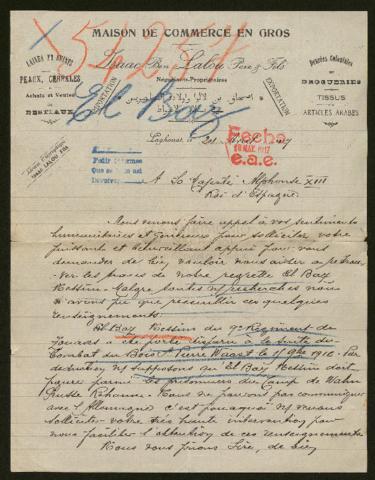 MAISON DE COMMERCE EN GROS
Isaac Ben Lalou Père & Fils
Négociants-Propriétaires
LAINES ET
PEAUX, CÉRÉALES
Achats et Ventes
DE
BESTIAUX
EXPORTATION
EXPORTATION
Denrées Coloniales
DROGUERIES
TISSUS
ARTICLES ARABES
54254
El Baz
Laghouat, le
Fecho
MAY. 1917
e.a.e.
Pedir informes
Que se
Devolver
A Sa Majesté Alphonse XIII
Roi d'Espagne.
Nous venons faire appel à vos sentiments
humanitaires et généreux pour solliciter votre
puissant et bienveillant appui pour vous
demander de bien vouloir nous aider à retrou-
ver les traces de notre regretté El Baz
Nessim. Malgré toutes nos recherches nous
n'avons pu que recueillir ces quelques
renseignements.
El Baz Nessim du 9e Régiment de
Zouaves a été porté disparu à la suite du
Combat du Bois St Pierre Waast le 1916. Par
déduction ns supposons que El Baz Nessim doit
figurer parmi les prisonniers du Camp de Wahn
Prusse Rhénane. Nous ne pouvons pas communiquer
avec l'Allemagne c'est pourquoi ns venons
solliciter votre très haute intervention pour
nous faciliter l'obtention de ces renseignements.
Nous vous prions Sire, de bien